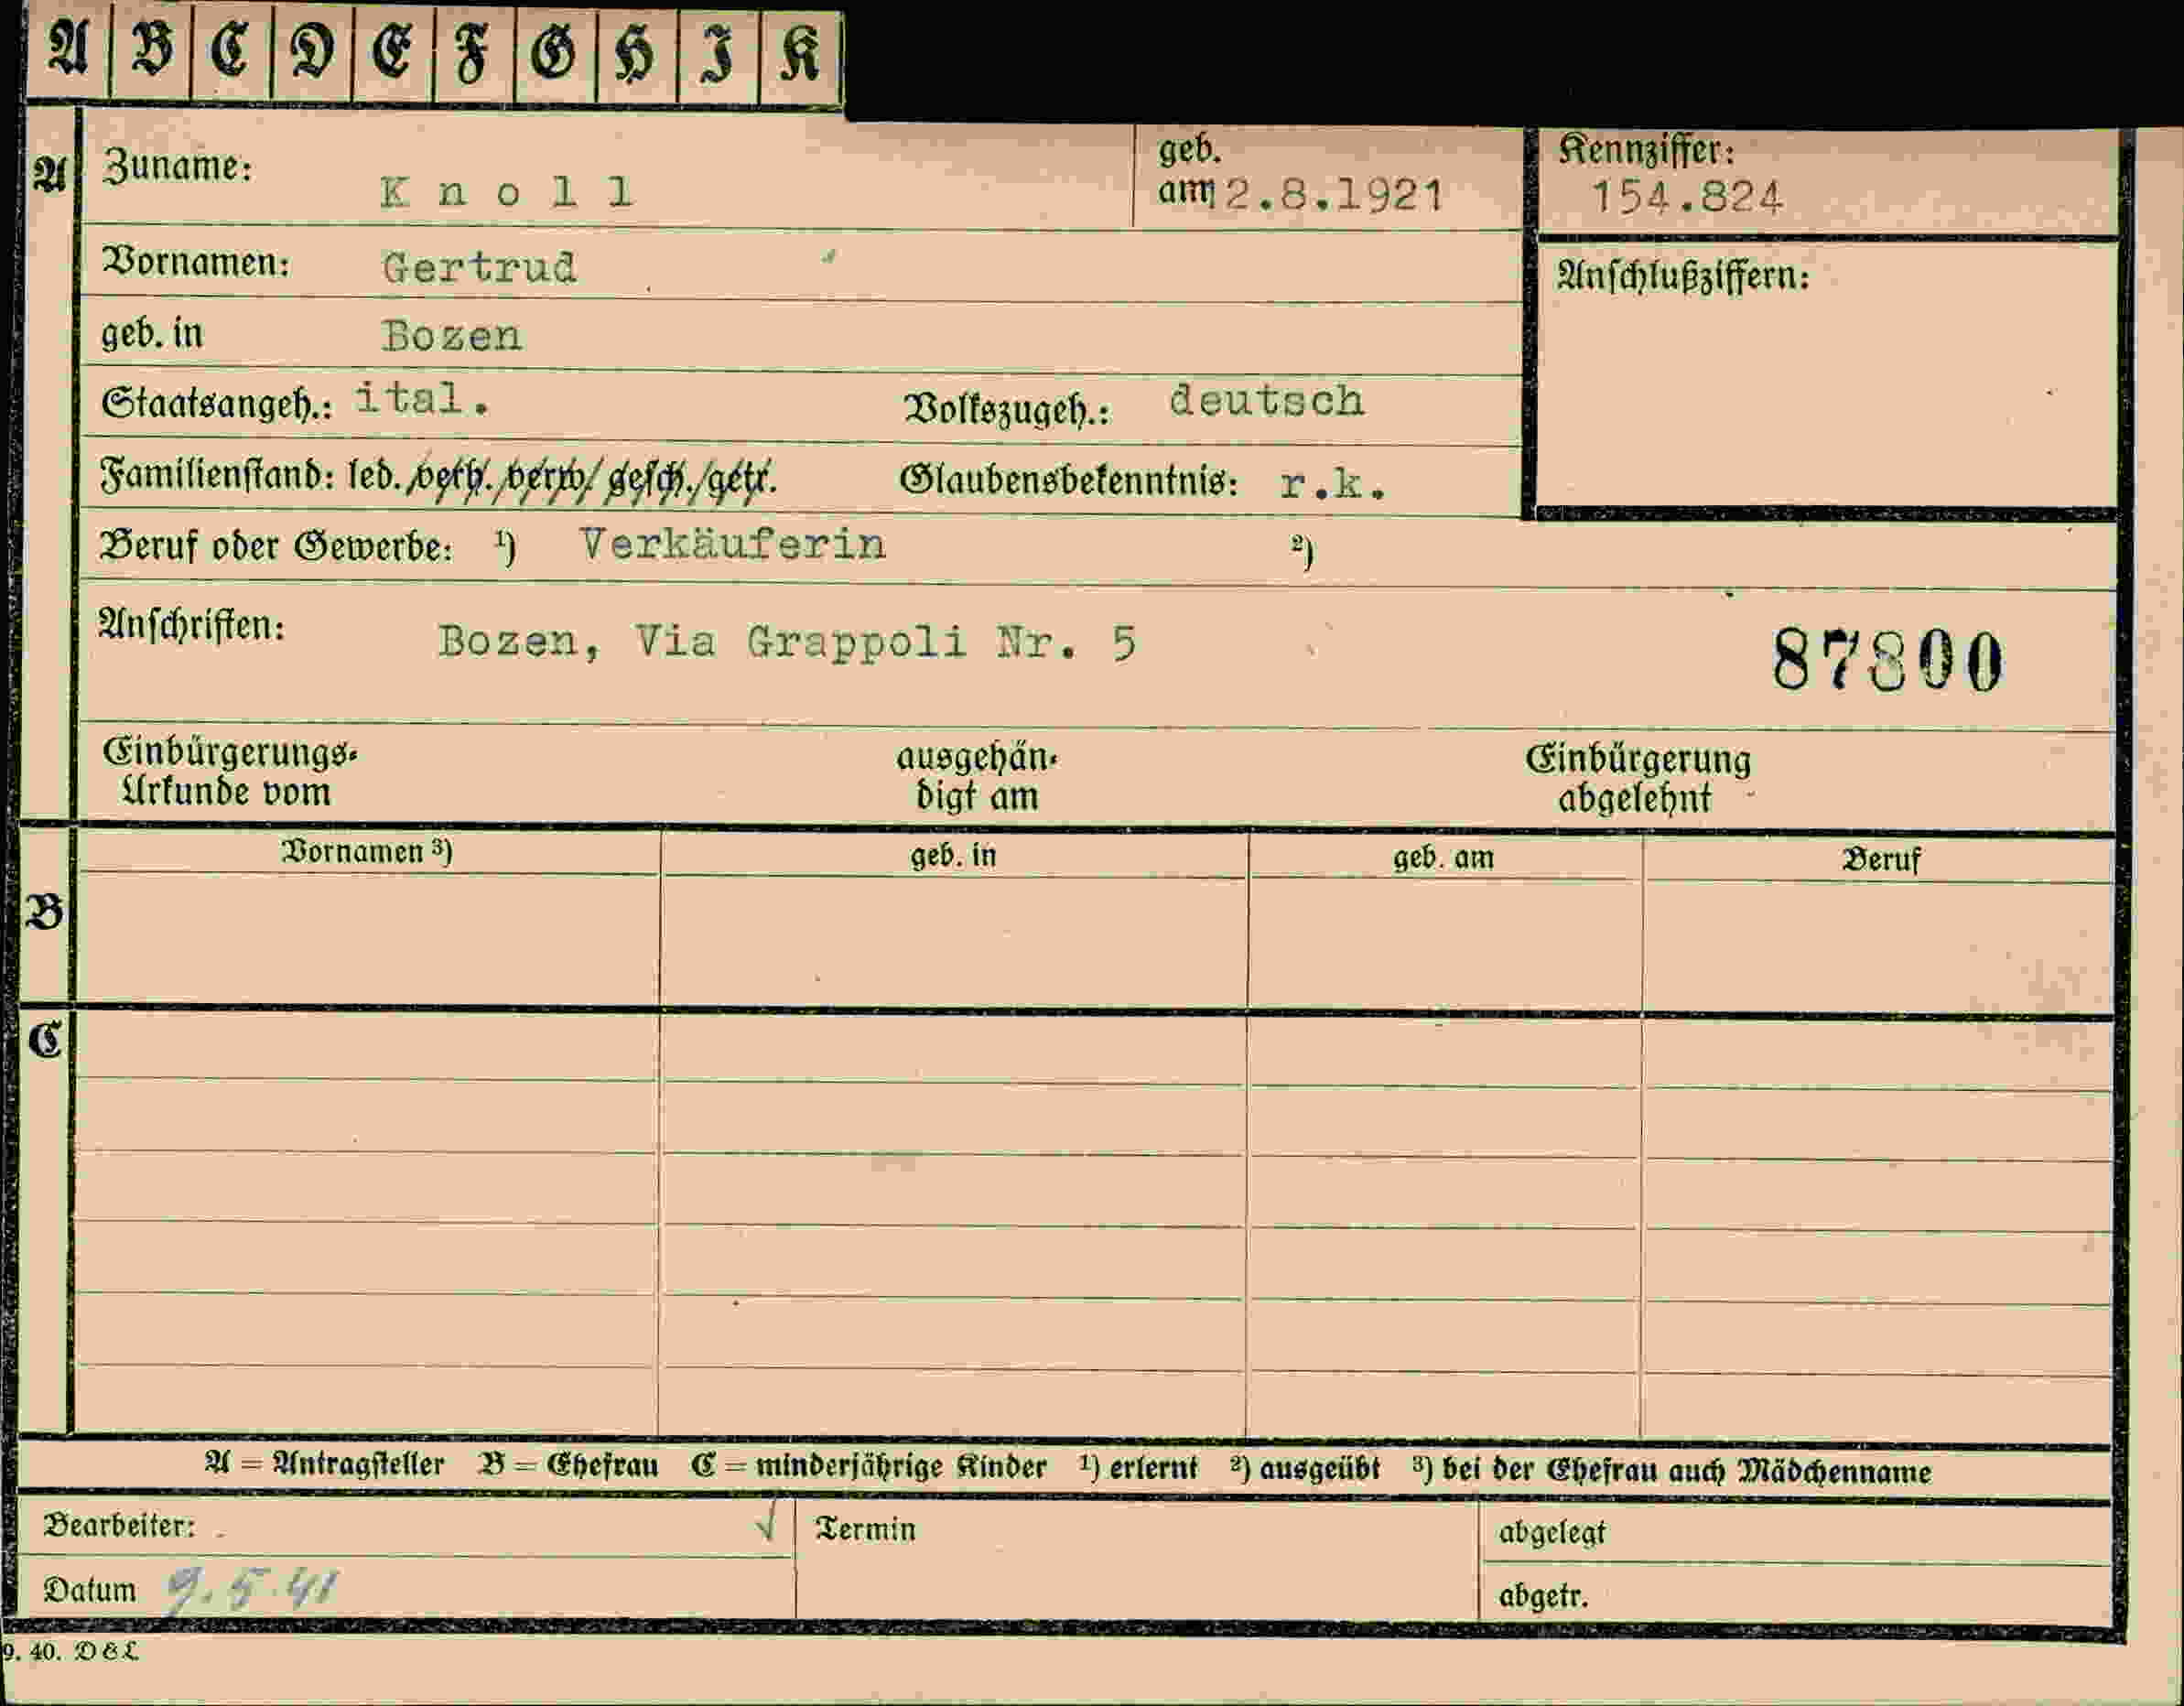 A B C D E F G H I K
A Zuname: Knoll geb. am 12.8.1921 Kennziffer: 154.824
Vornamen: Gertrud Anschlußziffern:
geb. in Bozen
Staatsangeh.: ital. Volkszugeh.: deutsch
Familienstand: led./verh./verw/gesch./getr. Glaubensbekenntnis: r.k.
Beruf oder Gewerbe: ¹) Verkäuferin ²)
Anschriften: Bozen, Via Grappoli Nr. 5 87800
Einbürgerungs- ausgehän- Einbürgerung
Urkunde vom digt am abgelehnt
Vornamen ³) geb. in geb. am Beruf
B
C
A = Antragsteller B = Ehefrau C = minderjährige Kinder ¹) erlernt ²) ausgeübt ³) bei der Ehefrau auch Mädchenname
Bearbeiter: √ Termin abgelegt
Datum 9.5.41 abgetr.
9. 40. D&L